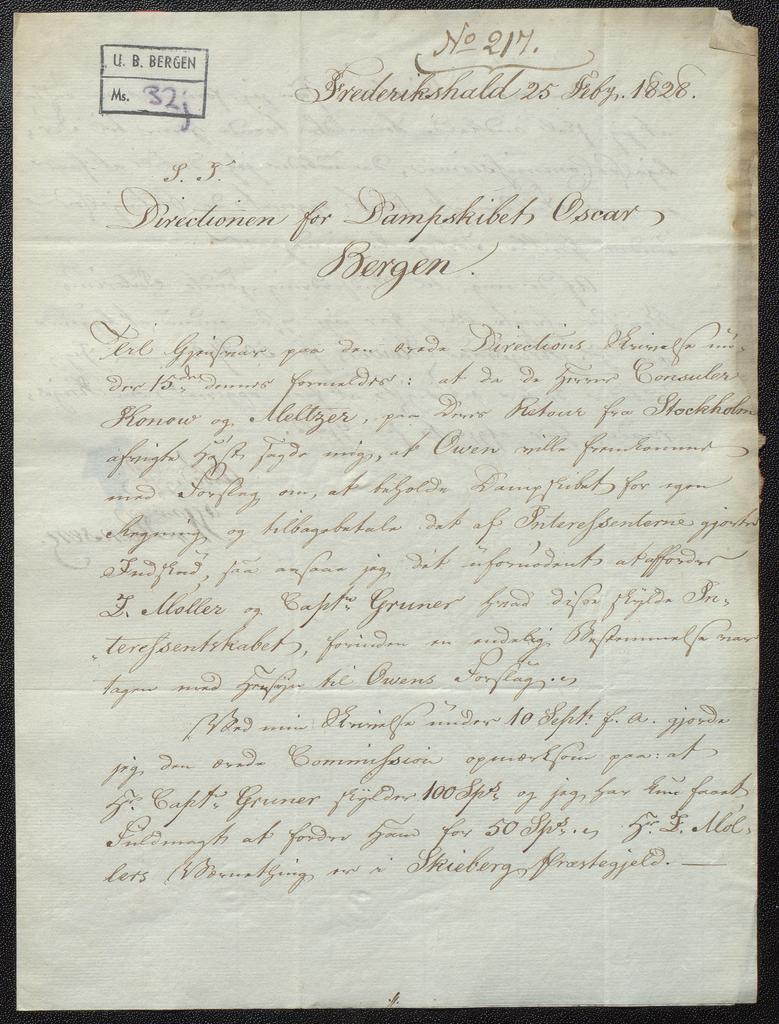 No 217.
U. B. BERGEN
Ms. 32j
Frederikshald 25 Feby. 1828.
S. T.
Directionen for Dampskibet Oscar
Bergen.
Til Gjensvar paa den ærede Directions Skrivelse un-
der 15de dennes formeldes: at da de Herrer Consuler
Konow og Meltzer, paa Deres Retour fra Stockholm
afvigte Høst sagde mig, at Owen ville fremkomme
med Forslag om, at beholde Dampskibet for egen
Regning og tilbagebetale det af Interessenterne gjorte
Indskud, saa ansaae jeg det ufornødent at affordre
I. Møller og Captn Gruner hvad disse skylde In-
teressentskabet, forinden en endelig Bestemmelse var
tagen med Hensyn til Owens Forslag.
Ved min Skrivelse under 10 Septr f. a. gjorde
jeg den ærede Commission opmærksom paa: at
Hr Captn Gruner skylder 100 Spd og jeg har kun faaet
Fuldmagt at fordre Ham for 50 Spd. Hr I. Møl-
lers Værnething er i Skieberg Præstegjeld. —